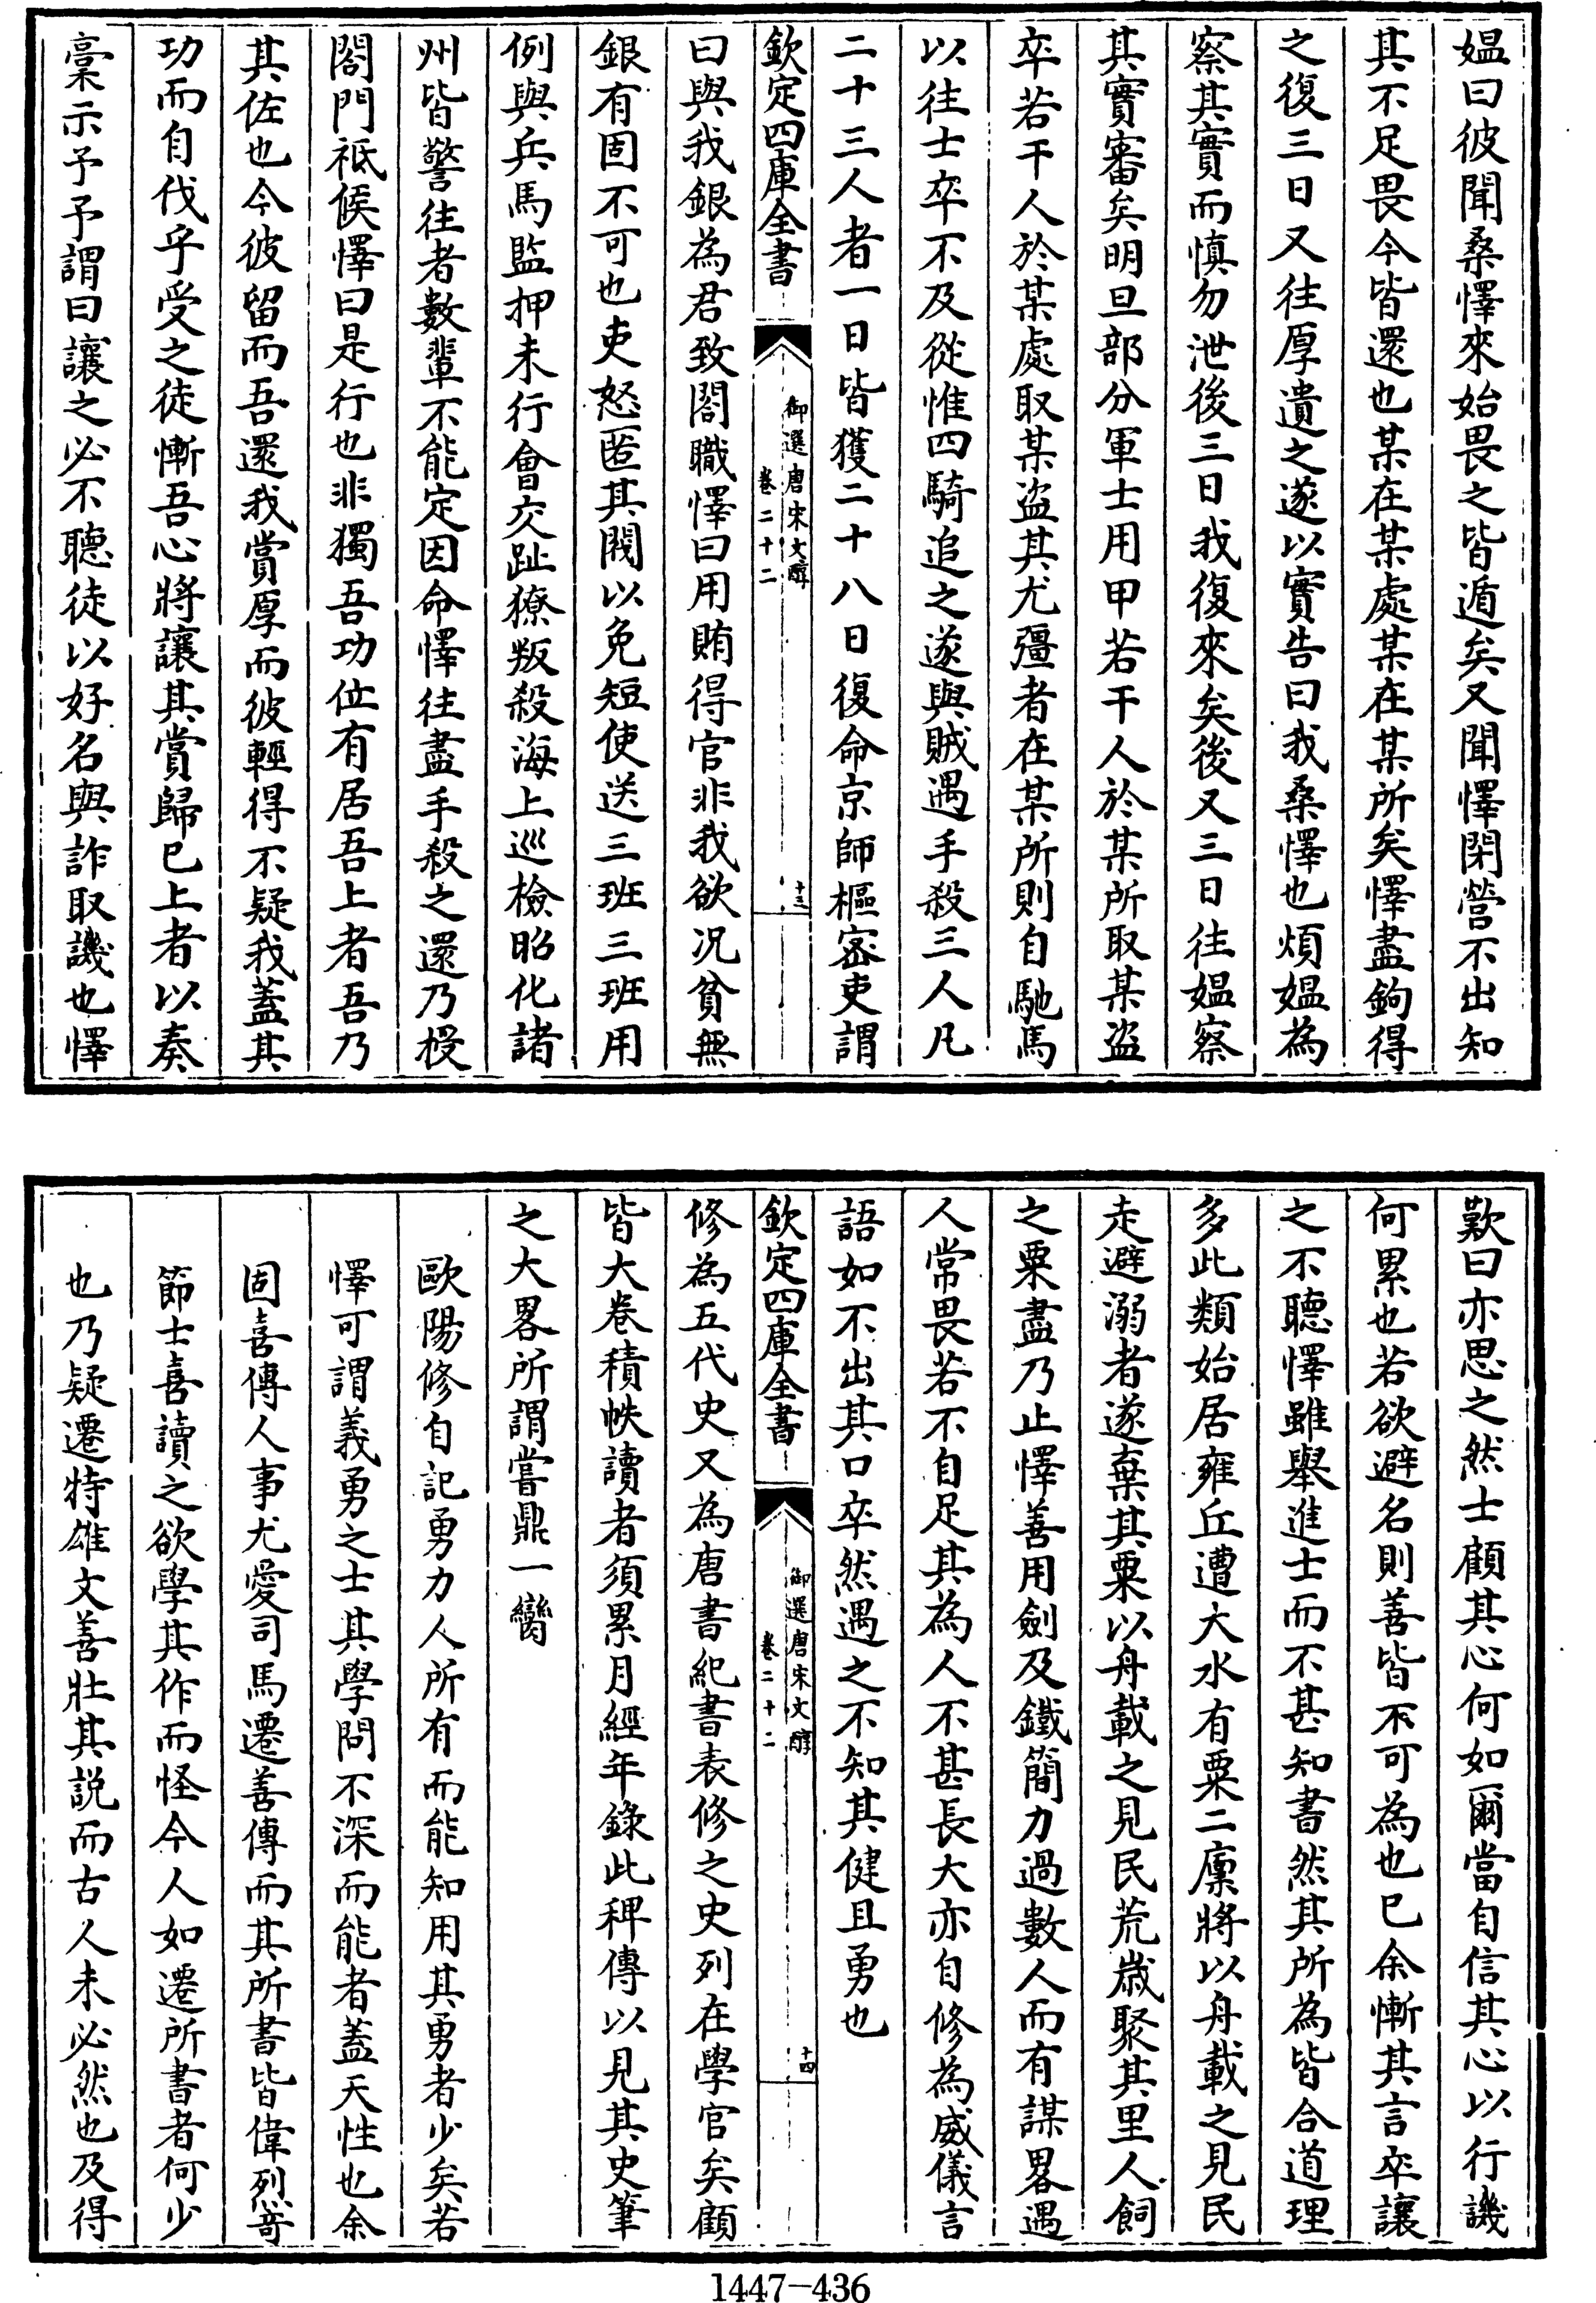 媪曰彼聞桑懌來始畏之皆遁矣又聞懌閉營不出知
其不足畏今皆還也某在某處某在某所矣懌盡鉤得
之復三日又往厚遺之遂以實告曰我桑懌也煩媪為
察其實而慎勿泄後三日我復來矣後又三日往媪察
其實審矣明旦部分軍士用甲若干人於某所取某盗
卒若干人於某處取某盗其尤彊者在某所則自馳馬
以往士卒不及從惟四騎追之遂與賊遇手殺三人凡
二十三人者一日皆獲二十八日復命京師樞密吏謂
欽定四庫全書
御選唐宋文醇
卷二十二
十三
曰與我銀為君致閤職懌曰用賄得官非我欲况貧無
銀有固不可也吏怒匿其閥以免短使送三班三班用
例與兵馬監押未行會交趾獠叛殺海上巡檢昭化諸
州皆警往者數輩不能定因命懌往盡手殺之還乃授
閤門祗候懌曰是行也非獨吾功位有居吾上者吾乃
其佐也今彼留而吾還我賞厚而彼輕得不疑我蓋其
功而自伐乎受之徒慚吾心將讓其賞歸已上者以奏
稾示予予謂曰讓之必不聽徒以好名與詐取譏也懌
歎曰亦思之然士顧其心何如爾當自信其心以行譏
何累也若欲避名則善皆不可為也已余慚其言卒讓
之不聽懌雖舉進士而不甚知書然其所為皆合道理
多此類始居雍丘遭大水有粟二廪將以舟載之見民
走避溺者遂棄其粟以舟載之見民荒歲聚其里人飼
之粟盡乃止懌善用劍及鐵簡力過數人而有謀畧遇
人常畏若不自足其為人不甚長大亦自修為威儀言
語如不出其口卒然遇之不知其健且勇也
欽定四庫全書
御選唐宋文醇
卷二十二
十四
修為五代史又為唐書紀書表修之史列在學官矣顧
皆大卷積帙讀者須累月經年錄此稗傳以見其史筆
之大畧所謂嘗鼎一臠
歐陽修自記勇力人所有而能知用其勇者少矣若
懌可謂義勇之士其學問不深而能者蓋天性也余
固喜傳人事尤愛司馬遷善傳而其所書皆偉烈竒
節士喜讀之欲學其作而怪今人如遷所書者何少
也乃疑遷特雄文善壯其説而古人未必然也及得
1447-436